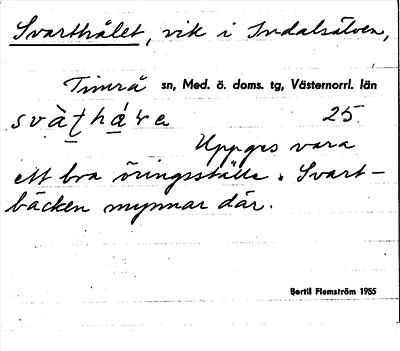 Svarthålet, vik i Indalsälven,
Timrå sn, Med. ö. doms. tg, Västernorrl. län
svàṯhá̱ɽe 25.
Uppges vara
ett bra öringsställe. Svart-
bäcken mynnar där.
Bertil Flemström 1955